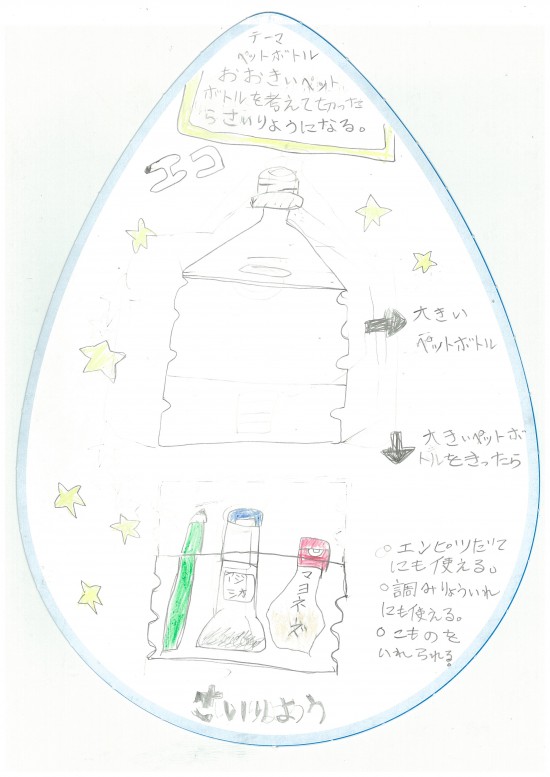 テーマ
ペットボトル
おおきいペット
ボトルを考えて切った
らさいりようになる。
エコ
大きい
ペットボトル
大きいペットボ
トルをきったら
アジシオ
マヨネーズ
○エンピツだて
にも使える。
○調みりょういれ
にも使える。
○こものを
いれられる。
さいりよう